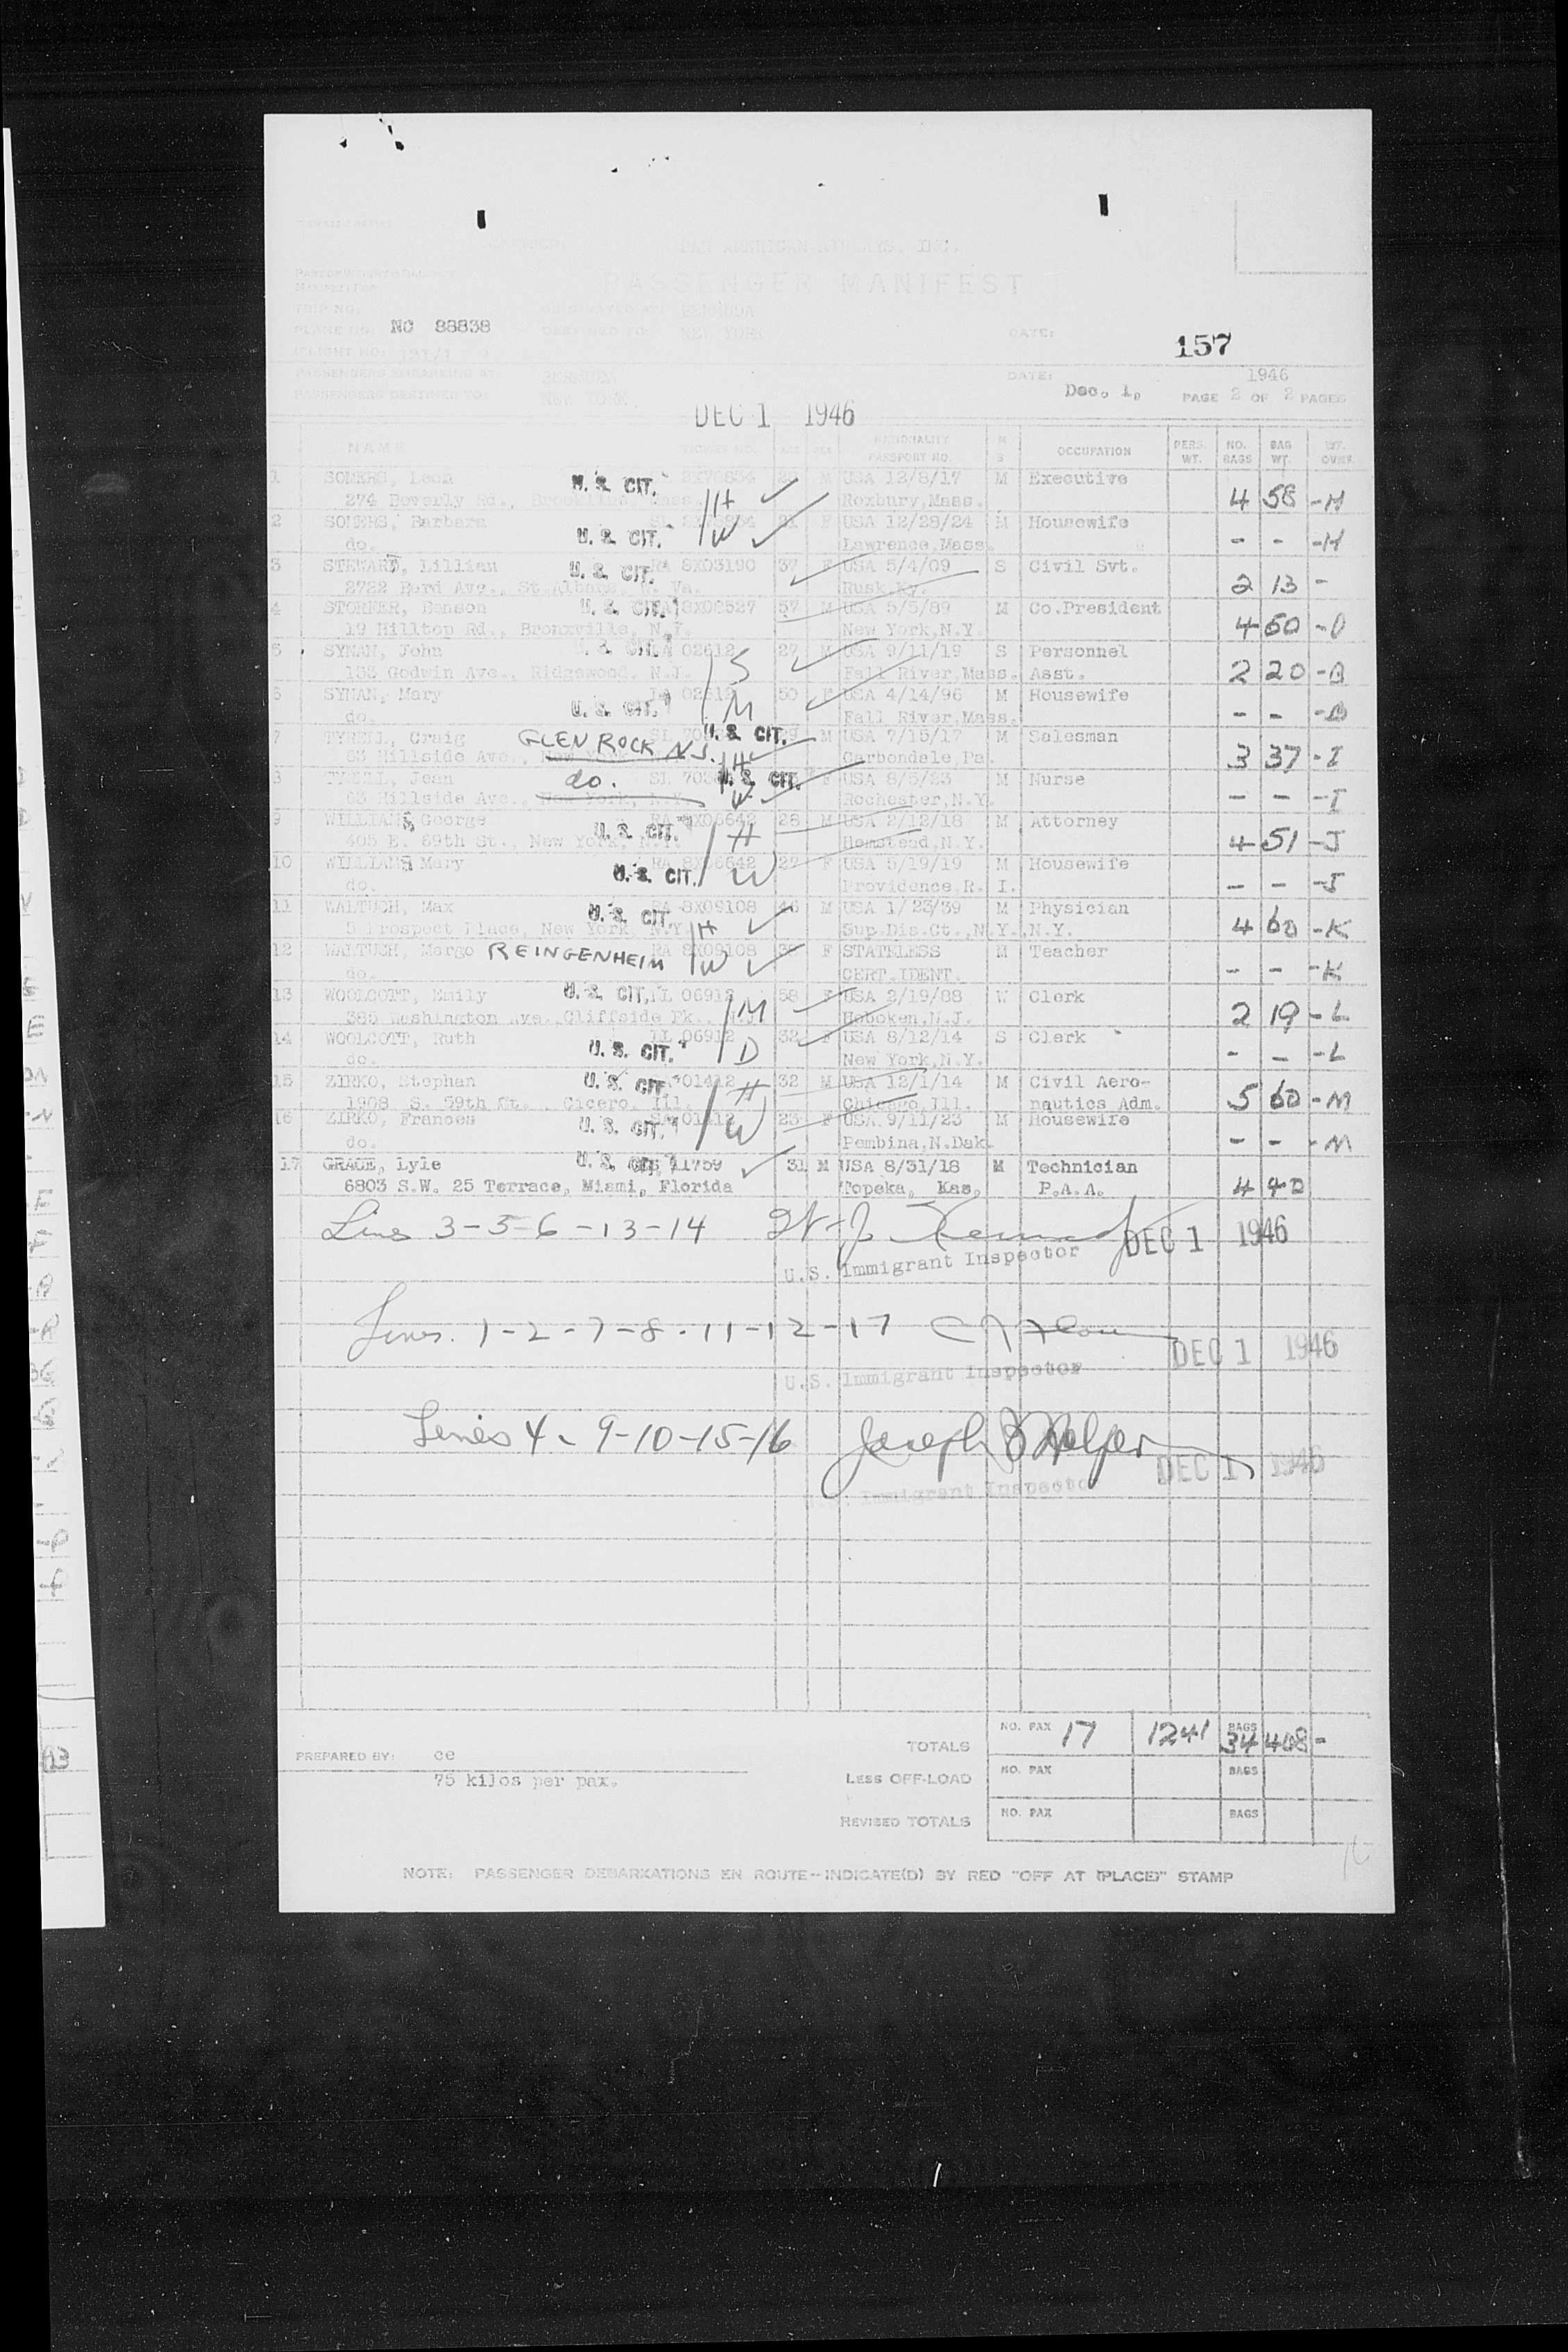 PAN AMERICAN AIRWAYS, INC.
PASSENGER MANIFEST
TRIP NO.
BERMUDA
PLANE NO. NC 88838
NEW YORK
DATE:
157
FLIGHT NO:
PASSENGERS EMBARKING AT: BERMUDA
DATE: Dec. 1, 1946
PASSENGERS DESTINED TO: NEW YORK
PAGE 2 OF 2 PAGES
DEC 1 1946
NAME TICKET NO. AGE SEX NATIONALITY PASSPORT NO. M S OCCUPATION PERS. WT. NO. BAGS BAG WT.
1 SOMERS, Leon U. S. CIT. M USA 12/8/17 M Executive
274 Beverly Rd., Brookline, Mass. H Roxbury, Mass. 4 58 -H
2 SOMERS, Barbara U. S. CIT. W 21 F USA 12/28/24 M Housewife
do. Lawrence, Mass. - - -H
3 STEWART, Lillian U. S. CIT. RA 8X03190 37 F USA 5/4/09 S Civil Svt.
2722 Ave., St. Albans, W. Va. Rusk, Ky. 2 13 -
4 STORMER, Benson U. S. CIT. 8X08527 57 M USA 5/5/89 M Co. President
19 Hilltop Rd., Bronxville, N.Y. New York, N.Y. 4 60
5 SYNAN, John U. S. CIT. 02612 27 M USA 9/11/19 S Personnel
Godwin Ave., Ridgewood, N.J. S Fall River, Mass. Asst. 2 20 -B
6 SYNAN, Mary U. S. CIT. 50 F USA 4/14/96 M Housewife
do. M Fall River, Mass. - - -B
7 TYRELL, Craig GLEN ROCK N.J. U. S. CIT. 29 M USA 7/15/17 M Salesman
Hillside Ave., H Carbondale, Pa. 3 37 -I
8 TYRELL, Jean do. U. S. CIT. F USA 8/5/23 M Nurse
Hillside Ave., New York, N.Y. W Rochester, N.Y. - - -I
9 WILLIAMS George U. S. CIT. RA 8X06642 28 M USA 2/12/18 M Attorney
405 E. 89th St., New York, N.Y. H Hemstead, N.Y. 4 51 -J
10 WILLIAMS Mary U. S. CIT. RA 8X06642 27 F USA 5/19/19 M Housewife
do. W Providence, R. I. - - -J
11 WALTUCH, Max U. S. CIT. RA 8X09108 46 M USA 1/23/39 M Physician
5 Prospect Place, New York, N.Y. H Sup.Dis.Ct., N.Y., N.Y. 4 60 -K
12 WALTUCH, Margo REINGENHEIM RA 8X09108 F STATELESS M Teacher
do. W CERT. IDENT. - - -K
13 WOOLCOTT, Emily U. S. CIT. LL 06912 58 F USA 2/19/88 W Clerk
385 Washington Ave. Cliffside Pk., N.J. M Hoboken, N.J. 2 19 -L
14 WOOLCOTT, Ruth U. S. CIT. LL 06912 32 F USA 8/12/14 S Clerk
do. D New York, N.Y. - - -L
15 ZIRKO, Stephan U. S. CIT. 01412 32 M USA 12/1/14 M Civil Aero-
1908 S. 59th Ct., Cicero, Ill. H Chicago, Ill. nautics Adm. 5 60 -M
16 ZIRKO, Frances U. S. CIT. 01412 23 F USA 9/11/23 M Housewife
do. W Pembina, N.Dak. - - -M
17 GRADE, Lyle U. S. CIT. 11759 31 M USA 8/31/18 M Technician
6803 S.W. 25 Terrace, Miami, Florida Topeka, Kas. P.A.A. 4 40
Lines 3-5-6-13-14 DEC 1 1946
U.S. Immigrant Inspector
Lines. 1-2-7-8-11-12-17 DEC 1 1946
U.S. Immigrant Inspector
Lines 4-9-10-15-16 Joseph DEC 1 1946
Immigrant Inspector
TOTALS NO. PAX 17 1241 BAGS 34 408 -
PREPARED BY: ce
75 kilos per pax.
LESS OFF-LOAD NO. PAX BAGS
REVISED TOTALS NO. PAX BAGS
NOTE: PASSENGER DEBARKATIONS EN ROUTE--INDICATE(D) BY RED "OFF AT (PLACE)" STAMP